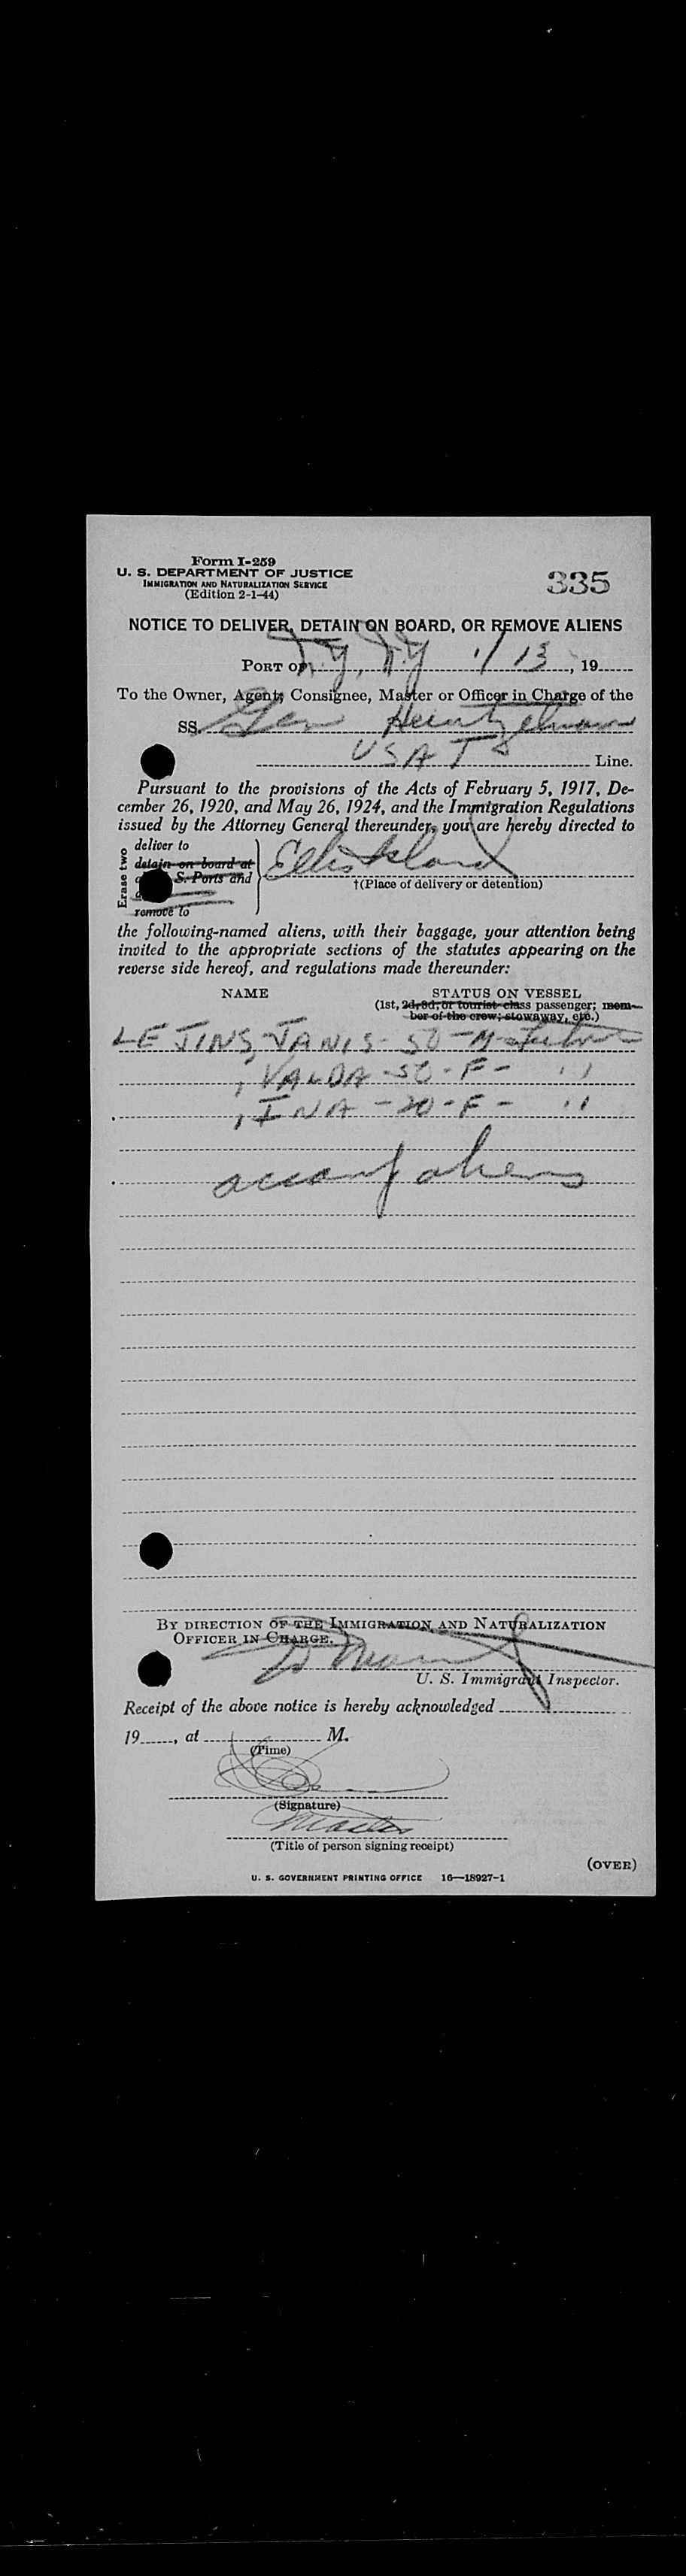 Form I-259
U. S. DEPARTMENT OF JUSTICE
IMMIGRATION AND NATURALIZATION SERVICE
(Edition 2-1-44)
335
NOTICE TO DELIVER, DETAIN ON BOARD, OR REMOVE ALIENS
PORT OF N.Y, N.Y 1/13, 19
To the Owner, Agent, Consignee, Master or Officer in Charge of the
SS Gen Heintzelman
USAT Line.
Pursuant to the provisions of the Acts of February 5, 1917, De-
cember 26, 1920, and May 26, 1924, and the Immigration Regulations
issued by the Attorney General thereunder, you are hereby directed to
Erase two
deliver to
detain on board at
S. Ports and
remove to
Ellis Island
†(Place of delivery or detention)
the following-named aliens, with their baggage, your attention being
invited to the appropriate sections of the statutes appearing on the
reverse side hereof, and regulations made thereunder:
NAME STATUS ON VESSEL
(1st, 2d, 3d, or tourist class passenger; mem-
ber of the crew; stowaway, etc.)
LEJINS, JANIS - 50 - M -
, VALDA - 50 - F - "
, INA - 20 - F - "
aliens
BY DIRECTION OF THE IMMIGRATION AND NATURALIZATION
OFFICER IN CHARGE.
U. S. Immigrant Inspector.
Receipt of the above notice is hereby acknowledged
19, at M.
(Time)
(Signature)
Master
(Title of person signing receipt)
(OVER)
U. S. GOVERNMENT PRINTING OFFICE 16—18927-1